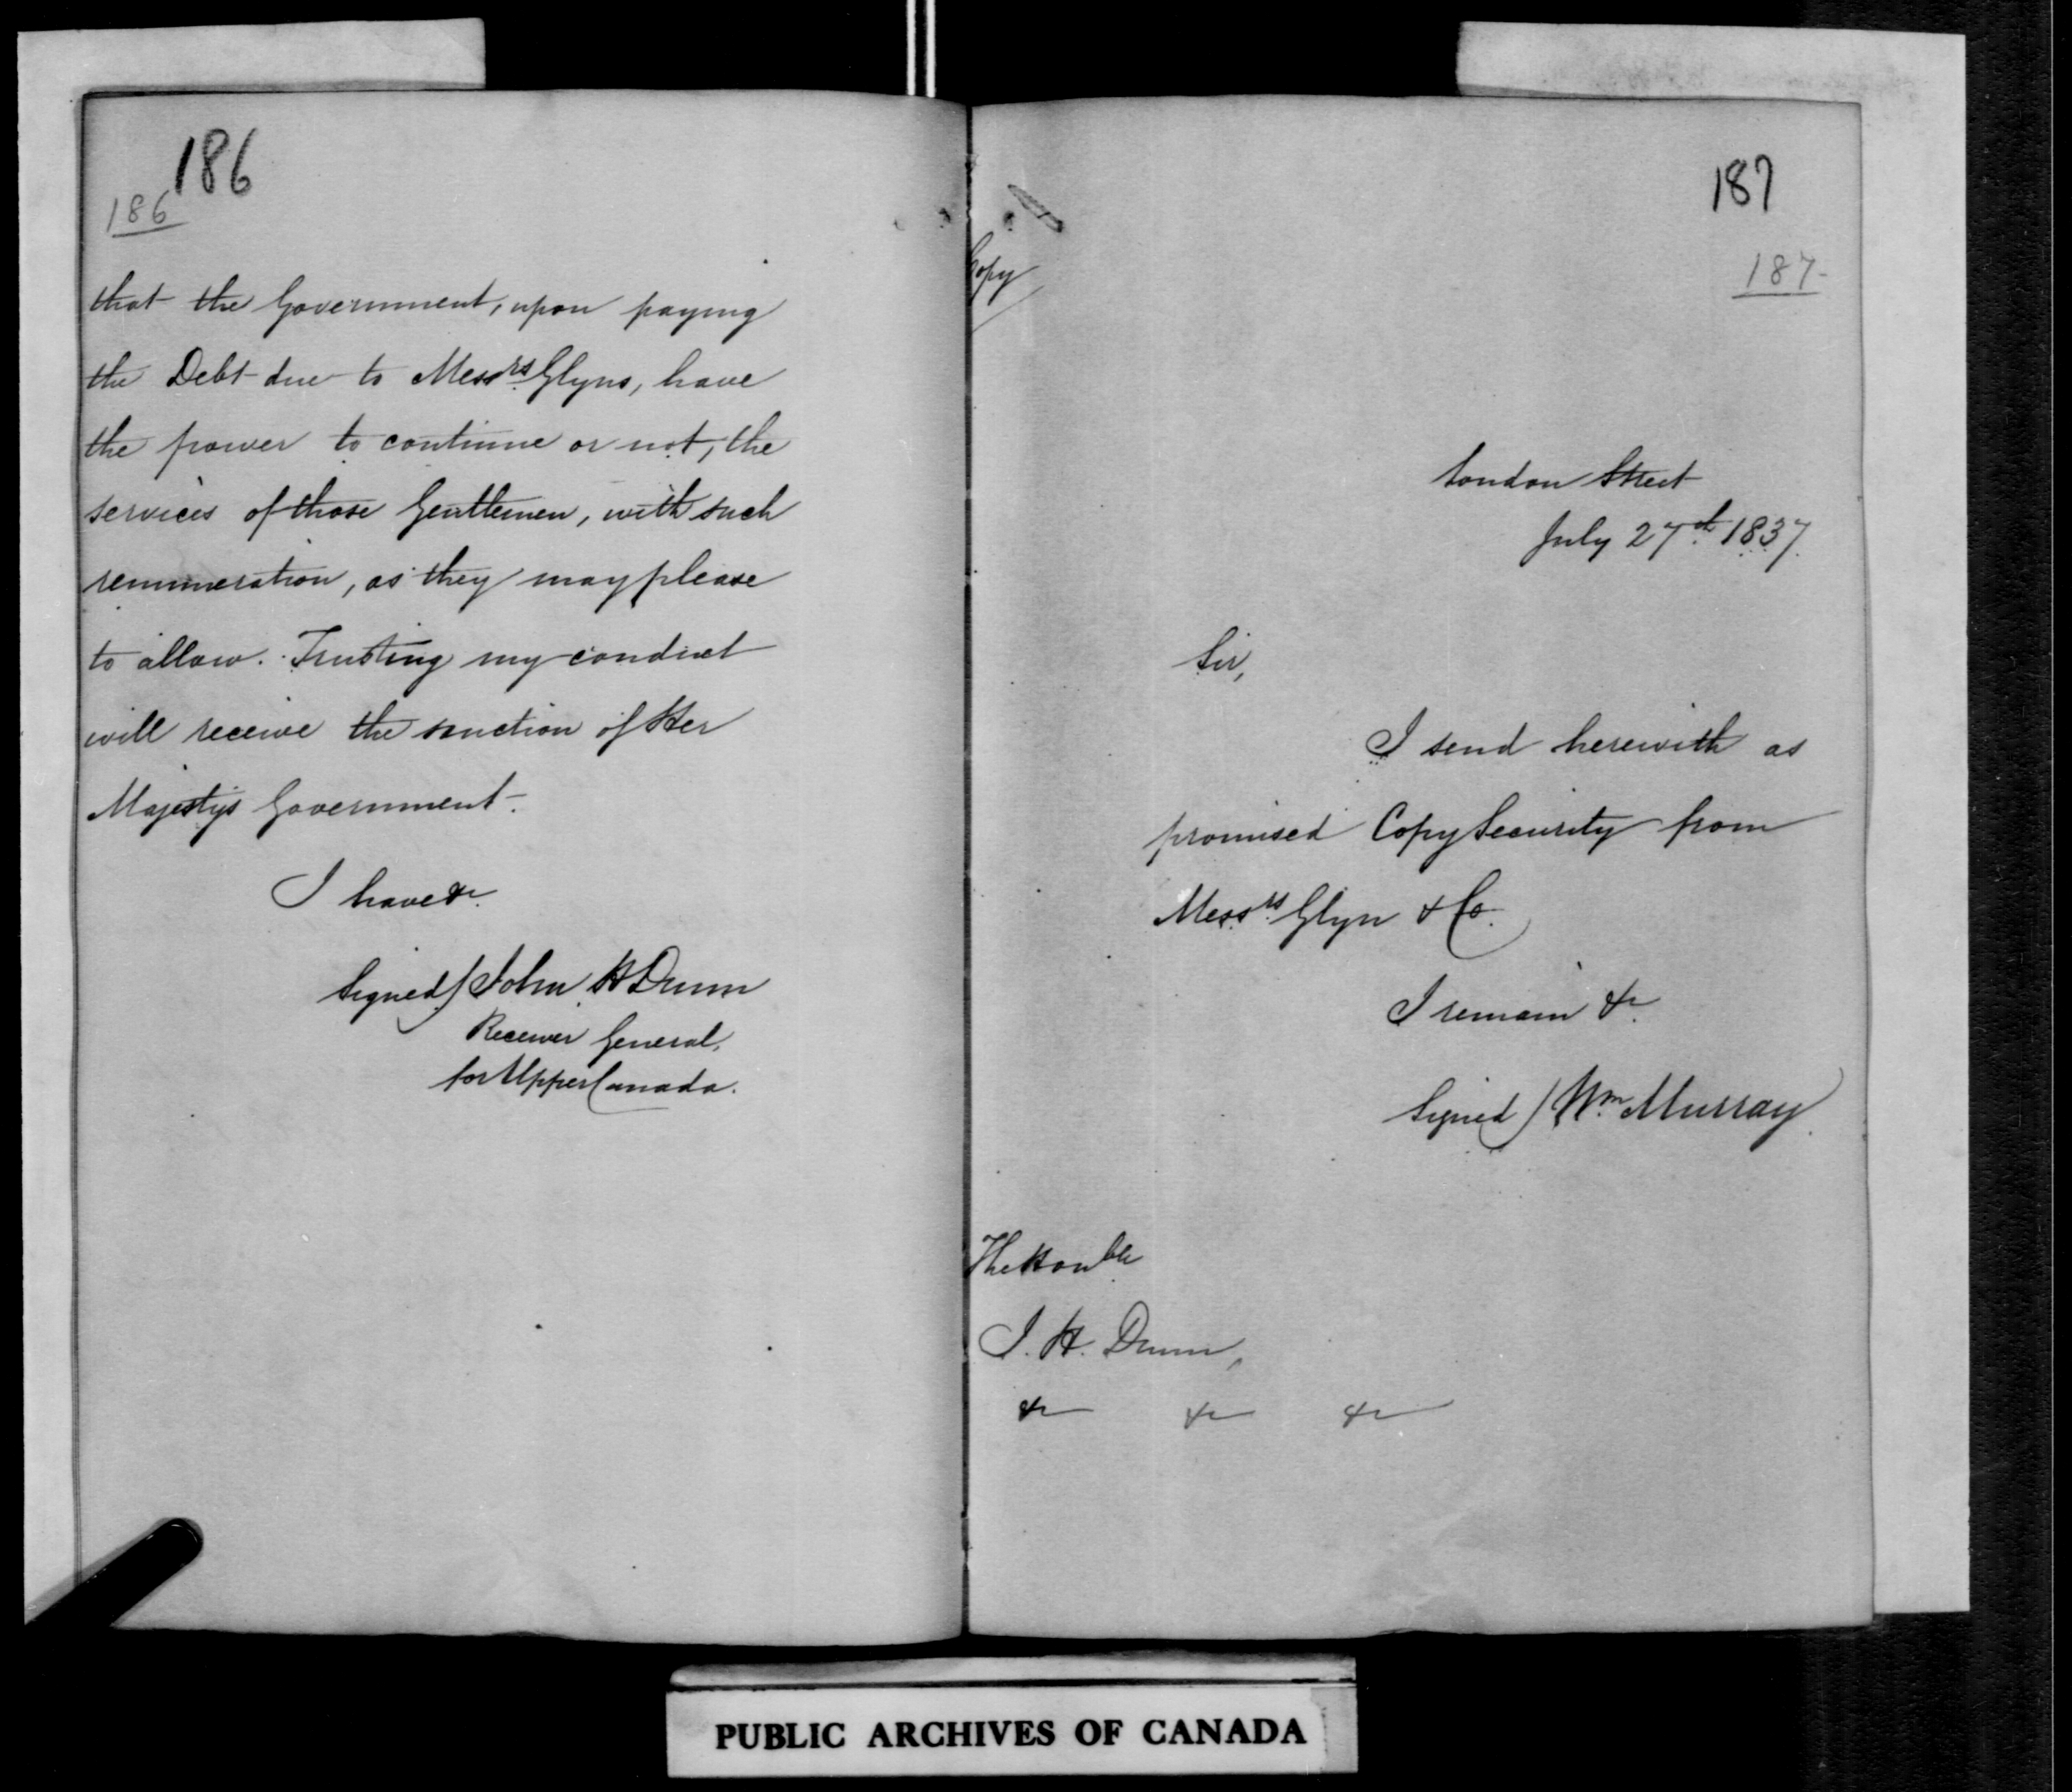 186
186
that the Government, upon paying
the Debt due to Messrs Glyns, have
the power to continue or not, the
services of those Gentlemen, with such
remuneration, as they may please
to allow. Trusting my conduct
will receive the sanction of Her
Majestys Government.
I have &c.
Signed/ John H Dunn
Receiver General,
for Upper Canada.
187
187
Copy
London Street
July 27th 1837.
Sir,
I send herewith as
promised Copy Security from
Messrs Glyn & Co.
I remain &c.
Signed / Wm Murray
The Honble
J. H. Dunn,
&c &c &c
PUBLIC ARCHIVES OF CANADA